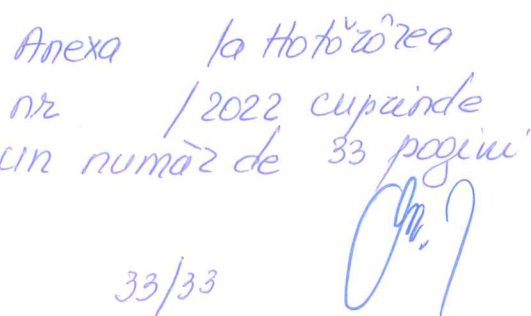 Anexa la Hotărârea
nr /2022 cuprinde
un număr de 33 pagini
33/33